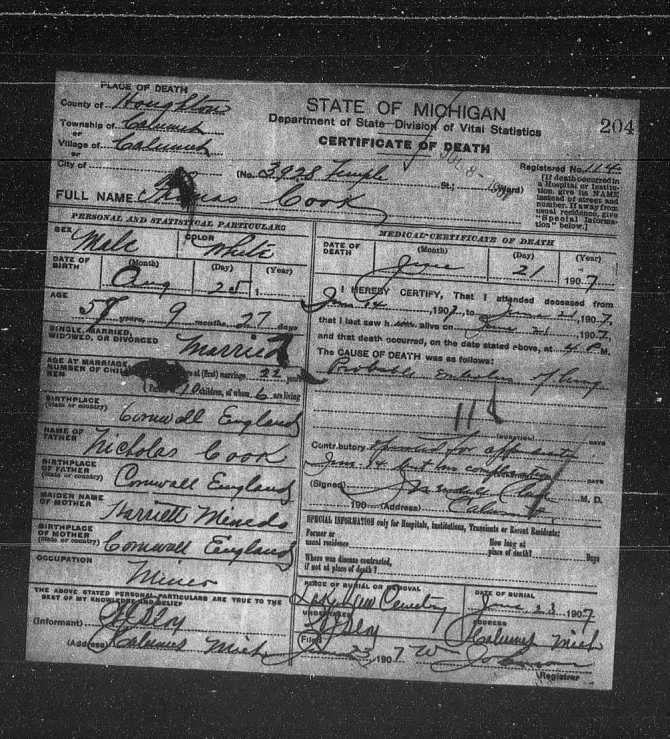 PLACE OF DEATH
County of Houghton
Township of Calumet
or
Village of Calumet
or
City of
STATE OF MICHIGAN
Department of State-Division of Vital Statistics
CERTIFICATE OF DEATH
204
Registered No. 114
(No. 3928 Temple St.; Ward)
[If death occurred in a Hospital or Institution, give its NAME instead of street and number. If away from usual residence, give "Special Information" below.]
FULL NAME Thomas Cook
PERSONAL AND STATISTICAL PARTICULARS
SEX Male
COLOR White
DATE OF BIRTH (Month) (Day) (Year)
Aug 25 1
AGE
9 months, 27 days
SINGLE, MARRIED, WIDOWED, OR DIVORCED Married
AGE AT MARRIAGE
NUMBER OF
at (first) marriage 22
10 children, of whom 6 are living
BIRTHPLACE
(State or country) Cornwall England
NAME OF FATHER Nicholas Cook
BIRTHPLACE OF FATHER
(State or country) Cornwall England
MAIDEN NAME OF MOTHER Harriett
BIRTHPLACE OF MOTHER
(State or country) Cornwall England
OCCUPATION Miner
THE ABOVE STATED PERSONAL PARTICULARS ARE TRUE TO THE BEST OF MY KNOWLEDGE AND BELIEF
(Informant)
(Address) Calumet Mich
MEDICAL CERTIFICATE OF DEATH
DATE OF DEATH (Month) (Day) (Year)
June 21 1907
I HEREBY CERTIFY, That I attended deceased from
June 14, 1907, to June 21, 1907,
that I last saw him alive on June 21, 1907,
and that death occurred, on the date stated above, at 4 P M.
The CAUSE OF DEATH was as follows:
Probable of lung
(DURATION) DAYS
Contributory operated for
June 14 but no
DAYS
(Signed) M. D.
190 (Address) Calumet
SPECIAL INFORMATION only for Hospitals, Institutions, Transients or Recent Residents:
Former or usual residence
How long at place of death? Days
Where was disease contracted, if not at place of death?
PLACE OF BURIAL OR REMOVAL
Lake View Cemetery
DATE OF BURIAL
June 23 1907
UNDERTAKER
ADDRESS
Calumet Mich
Filed June 23, 1907
Registrar